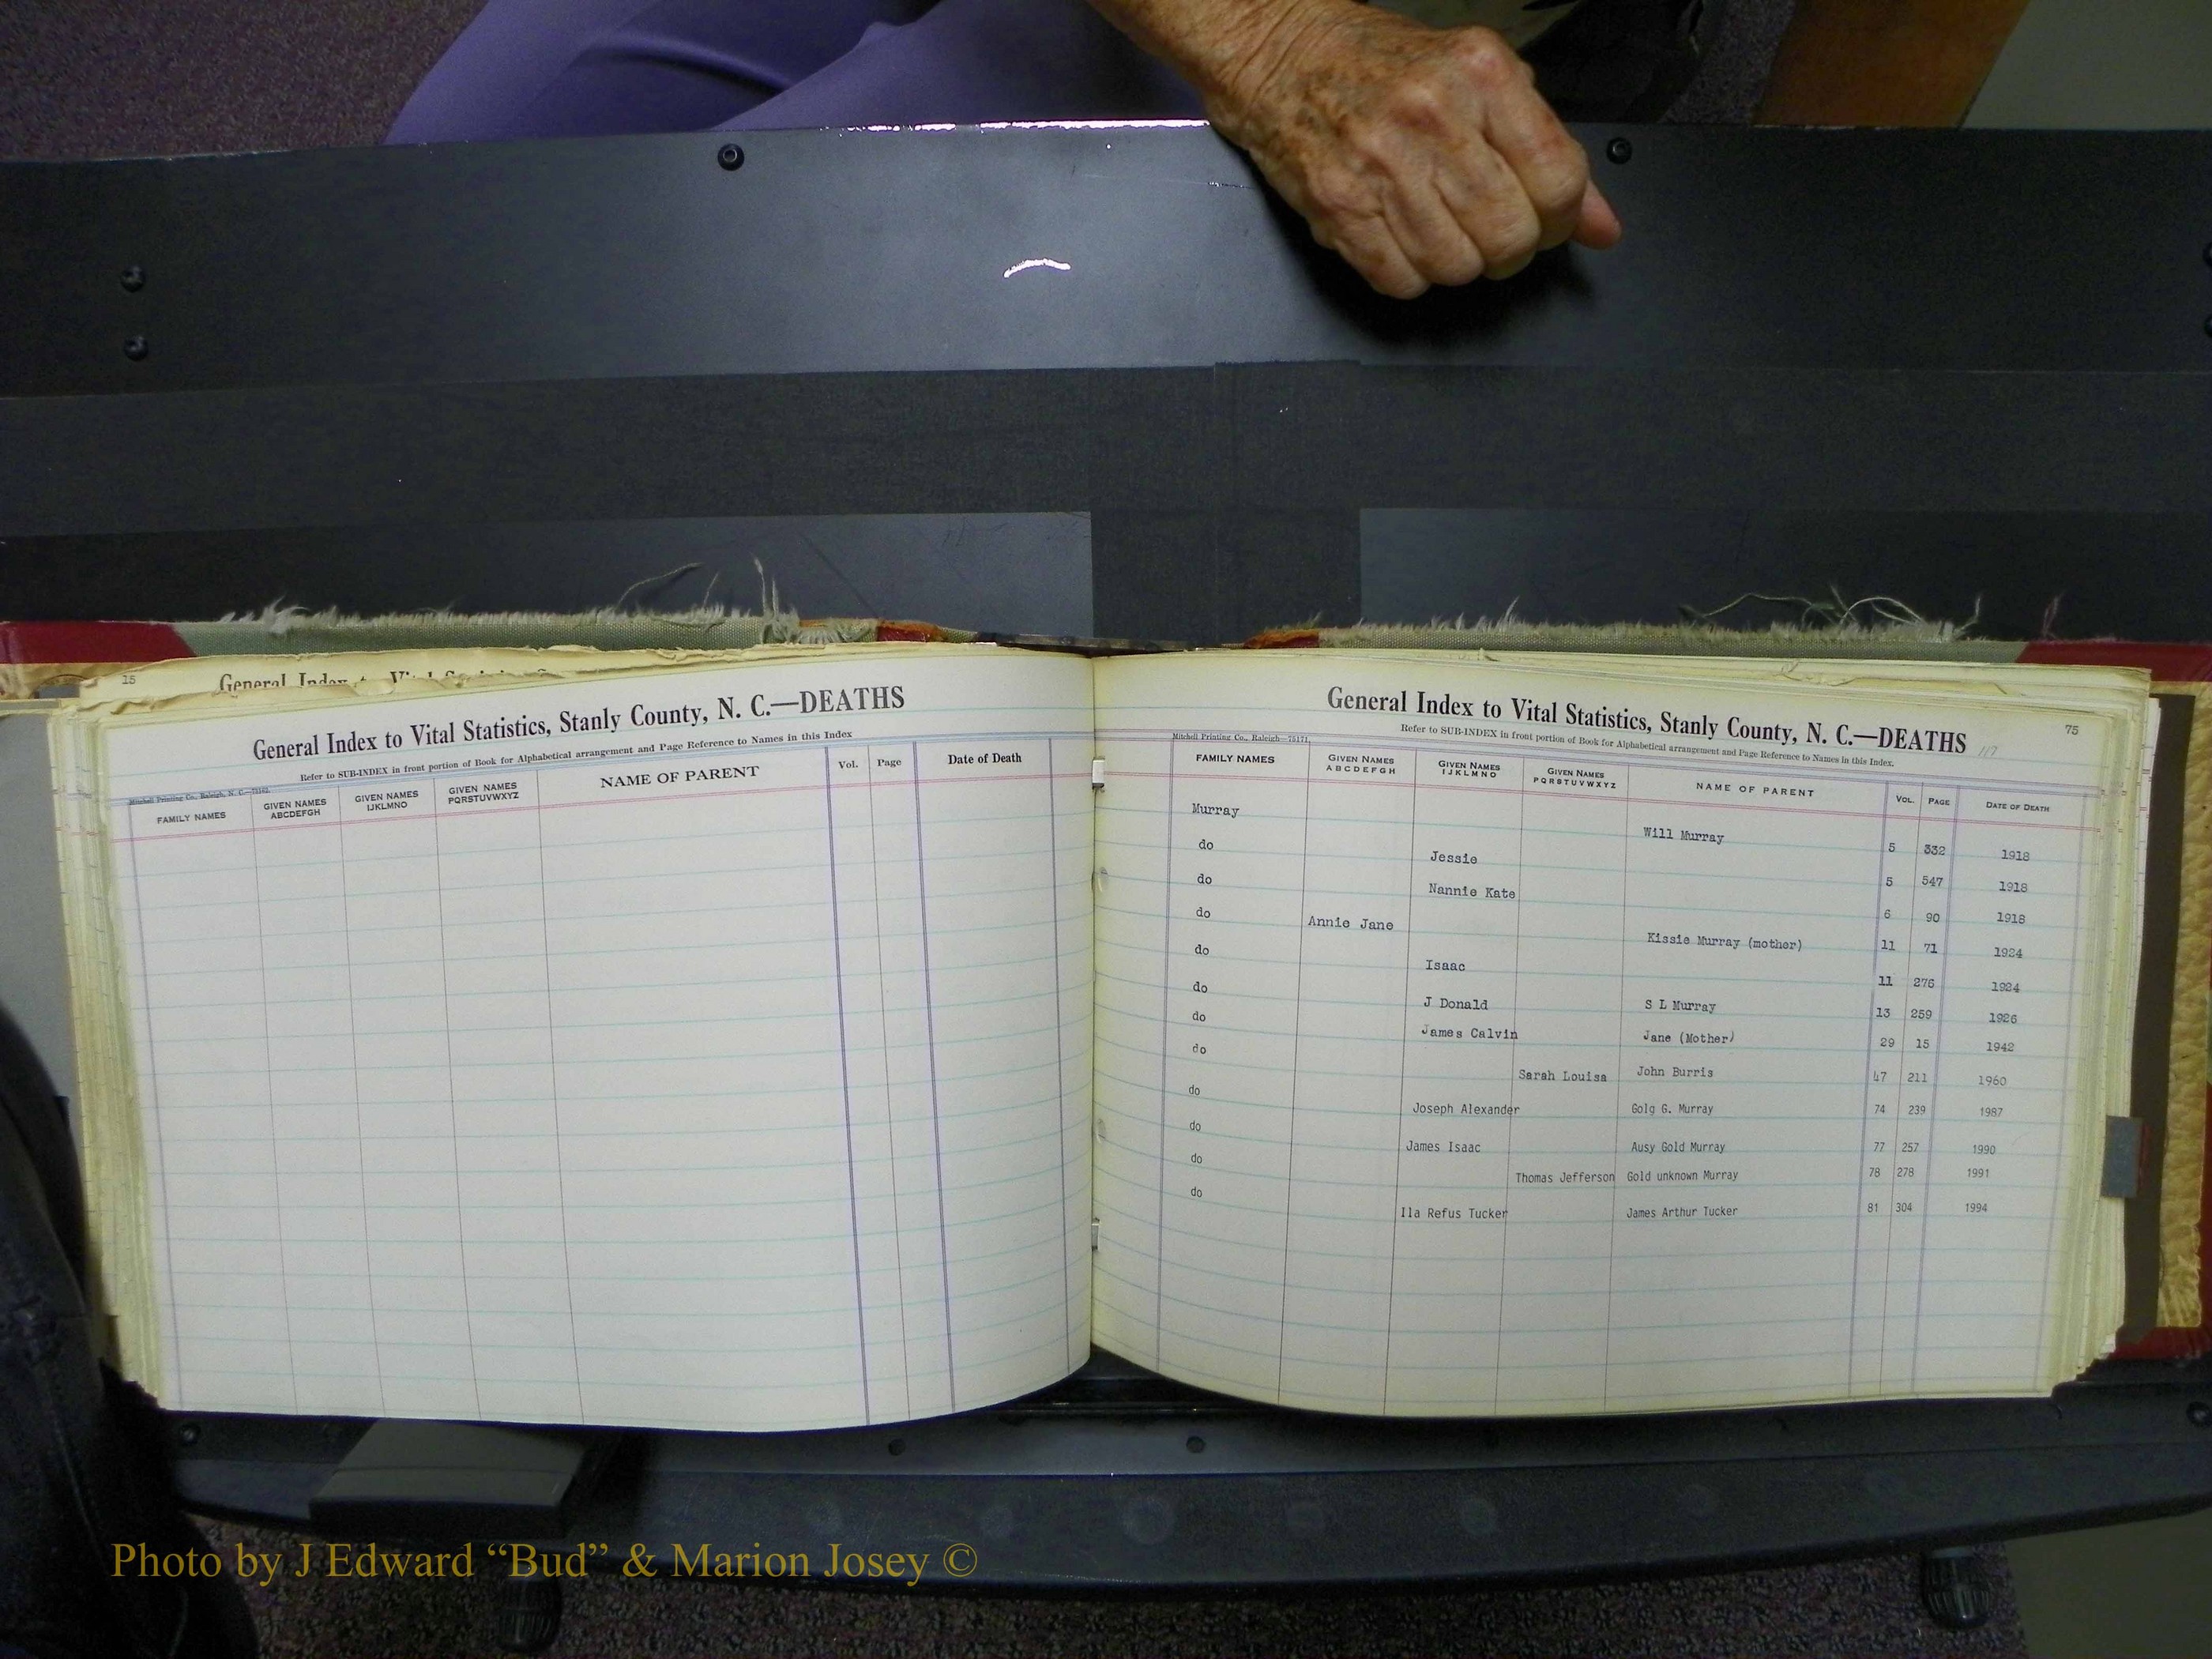 15
General Index to Vital
General Index to Vital Statistics, Stanly County, N. C.—DEATHS
Refer to SUB-INDEX in front portion of Book for Alphabetical arrangement and Page Reference to Names in this Index
Mitchell Printing Co., Raleigh, N. C.
FAMILY NAMES GIVEN NAMES ABCDEFGH GIVEN NAMES IJKLMNO GIVEN NAMES PQRSTUVWXYZ NAME OF PARENT Vol. Page Date of Death
75
General Index to Vital Statistics, Stanly County, N. C.—DEATHS 117
Refer to SUB-INDEX in front portion of Book for Alphabetical arrangement and Page Reference to Names in this Index.
Mitchell Printing Co., Raleigh—75171
FAMILY NAMES GIVEN NAMES ABCDEFGH GIVEN NAMES IJKLMNO GIVEN NAMES PQRSTUVWXYZ NAME OF PARENT VOL. PAGE DATE OF DEATH
Murray Will Murray 5 332 1918
do Jessie 5 547 1918
do Nannie Kate 6 90 1918
do Annie Jane Kissie Murray (mother) 11 71 1924
do Isaac 11 276 1924
do J Donald S L Murray 13 259 1926
do James Calvin Jane (Mother) 29 15 1942
do Sarah Louisa John Burris 47 211 1960
do Joseph Alexander Golg G. Murray 74 239 1987
do James Isaac Ausy Gold Murray 77 257 1990
do Thomas Jefferson Gold unknown Murray 78 278 1991
do Ila Refus Tucker James Arthur Tucker 81 304 1994
Photo by J Edward “Bud” & Marion Josey ©